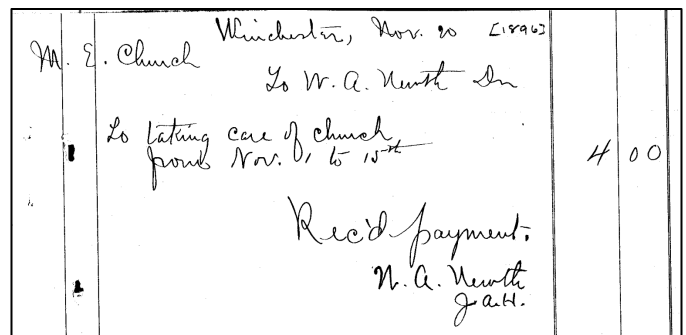 Winchester, Nov. 20 [1896]
M. E. Church
To W. A. Newth Dr
To taking care of church
from Nov. 1 to 15th 4 00
Rec'd payment.
W. A. Newth
J. A. H.